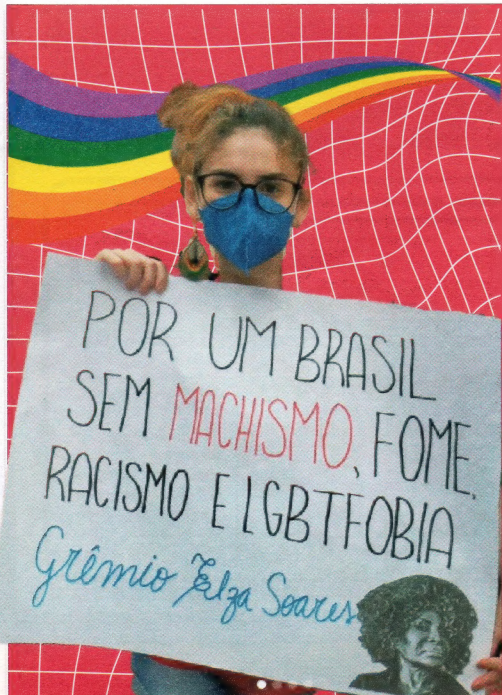 POR UM BRASIL
SEM MACHISMO, FOME,
RACISMO E LGBTFOBIA
Grêmio Elza Soares